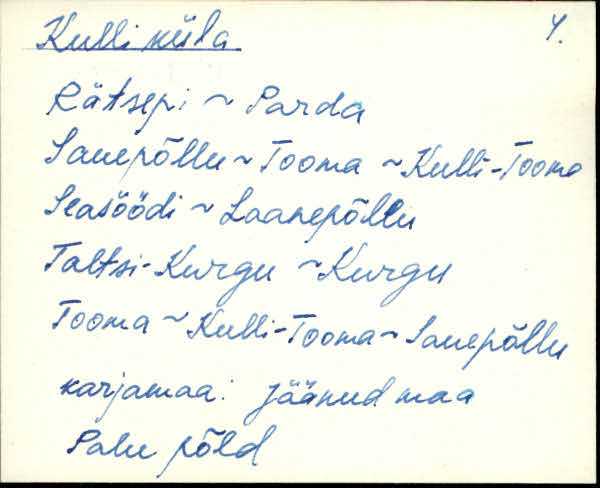 Kulli küla 4.
Rätsepi ~ Parda
Sauepõllu ~ Tooma ~ Kulli-Tooma
Seasöödi ~ Laanepõllu
Taltsi-Kurgu ~ Kurgu
Tooma ~ Kulli-Tooma ~ Sauepõllu
karjamaa: jäänud maa
Palu põld